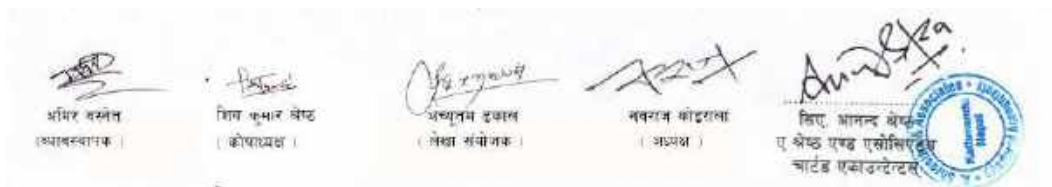 अमिर बस्नेत
( व्यवस्थापक )
शिव कुमार श्रेष्ठ
( कोषाध्यक्ष )
अच्युतम ढकाल
( लेखा संयोजक )
नवराज कोइराला
( अध्यक्ष )
सिए. आनन्द श्रेष्ठ
ए श्रेष्ठ एण्ड एसोसिएट्स
चार्टर्ड एकाउन्टेन्टस्
A. Shrestha & Associates
Kathmandu
Nepal